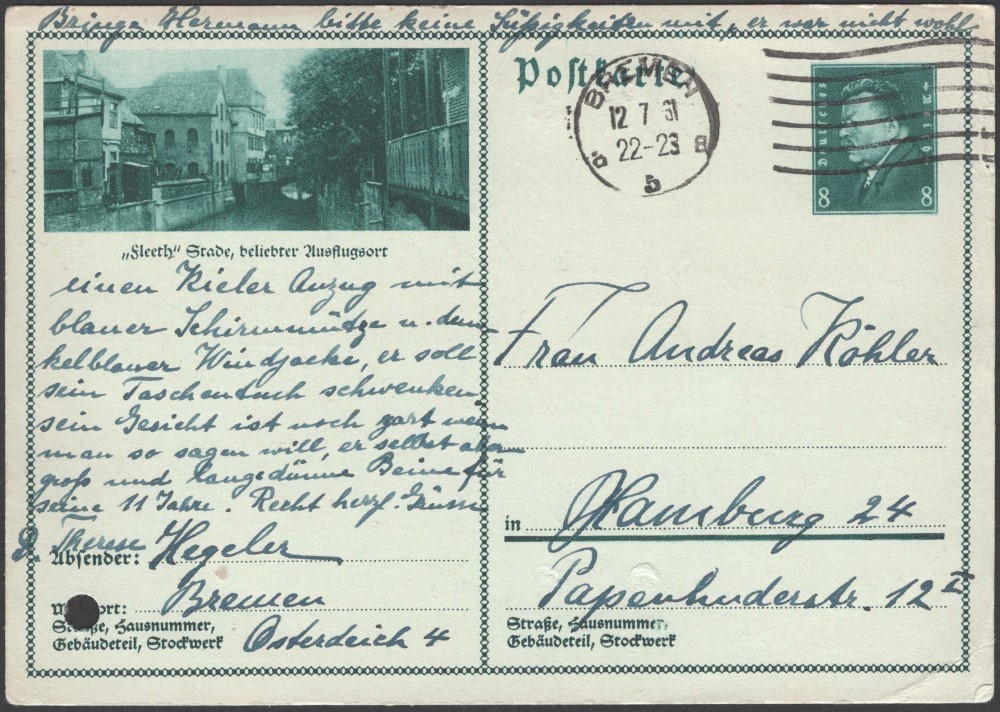 Bringe Hermann bitte keine Süßigkeiten mit, er war nicht wohl
Postkarte
BREMEN
12 7 31
22-23
5
Deutsches
8 8
„Fleeth“ Stade, beliebter Ausflugsort
einen Kieler Anzug mit
blauer Schirmmütze u. dun-
kelblauer Windjacke, er soll
sein Taschentuch schwenken
sein Gesicht ist noch zart wenn
man so sagen will, er selbst aber
groß und lange dünne Beine für
seine 11 Jahre. Recht herzl. Grüsse
D. Therese
Absender: Hegeler
Bremen
ort:
Straße, Hausnummer,
Gebäudeteil, Stockwerk
Osterdeich 4
Frau Andreas Köhler
in Hamburg 24
Papenhuderstr. 12 II
Straße, Hausnummer,
Gebäudeteil, Stockwerk